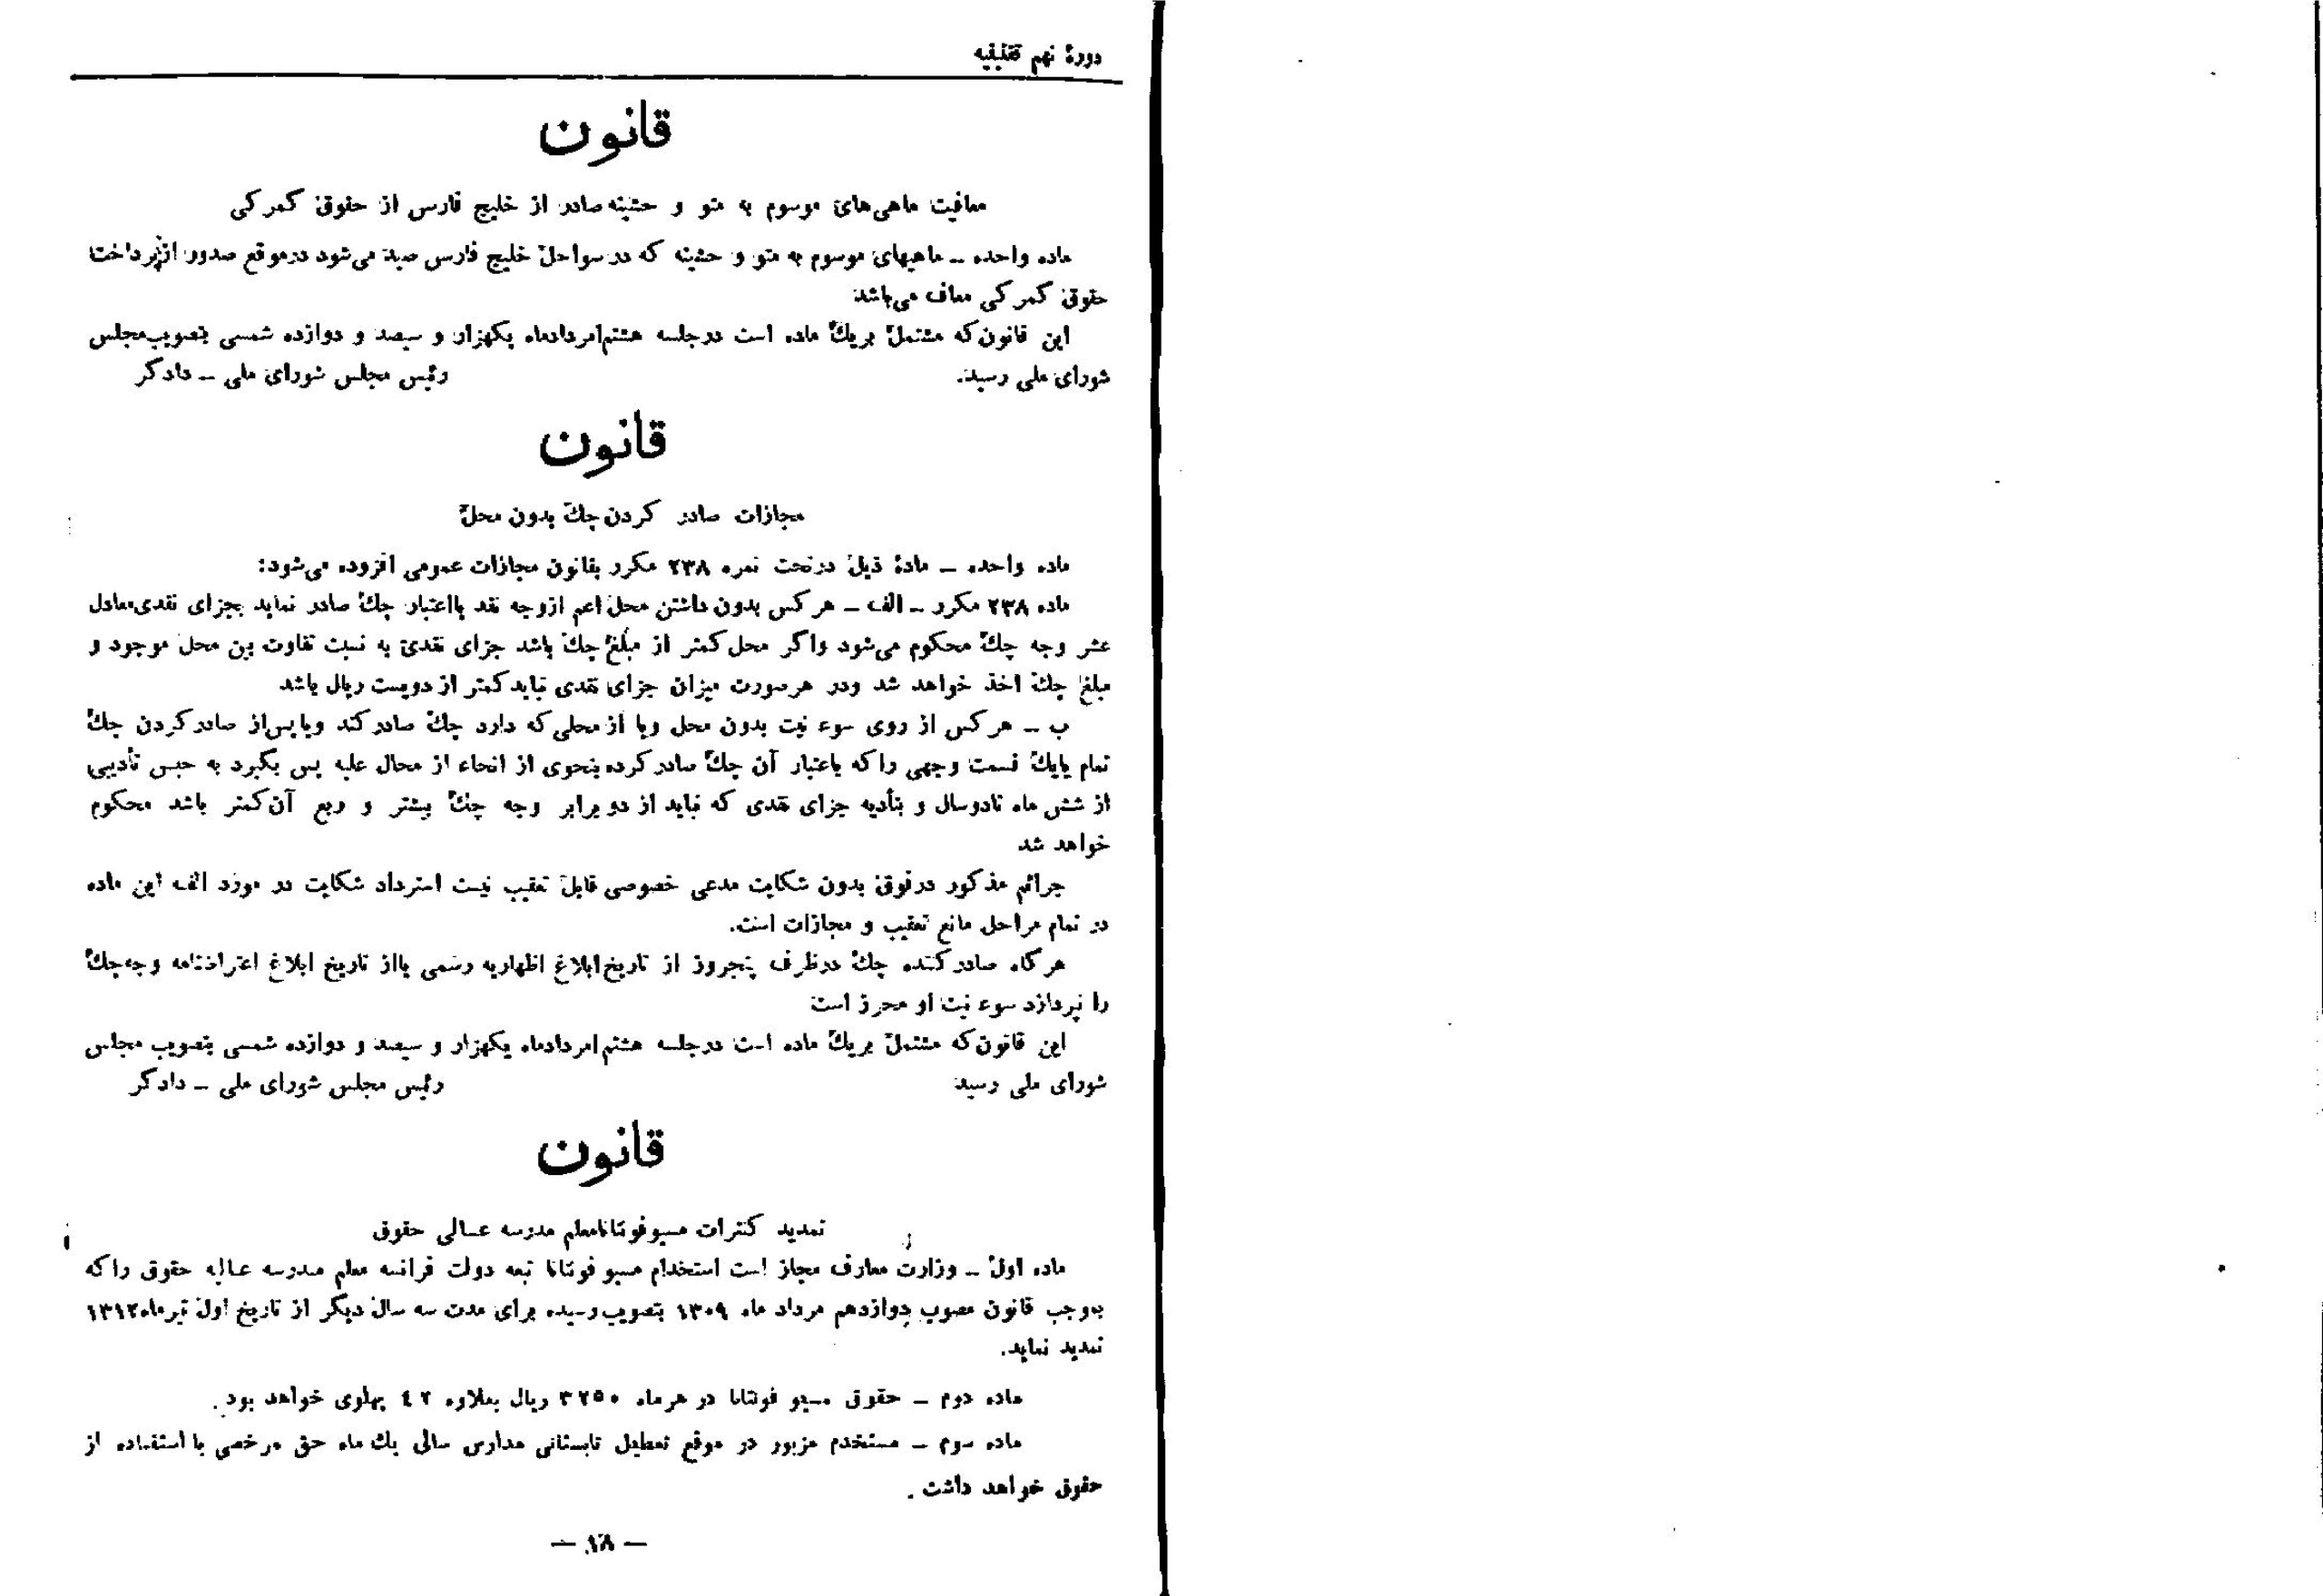 دورهٔ نهم تقنینیه
قانون
معافیت ماهی‌های موسوم به متو و حشینه صادر از خلیج فارس از حقوق گمرکی
ماده واحده ـ ماهیهای موسوم به متو و حشینه که در سواحل خلیج فارس صید می‌شود درموقع صدور از پرداخت
حقوق گمرکی معاف می‌باشد
این قانون که مشتمل بریک ماده است درجلسه هشتم امردادماه یکهزار و سیصد و دوازده شمسی بتصویب مجلس
شورای ملی رسید. رئیس مجلس شورای ملی ـ دادگر
قانون
مجازات صادر کردن چک بدون محل
ماده واحده ـ مادهٔ ذیل درتحت نمره ۲۳۸ مکرر بقانون مجازات عمومی افزوده می‌شود:
ماده ۲۳۸ مکرر ـ الف ـ هرکس بدون داشتن محل اعم ازوجه نقد یااعتبار چک صادر نماید بجزای نقدی معادل
عشر وجه چک محکوم می‌شود واگر محل کمتر از مبلغ چک باشد جزای نقدی به نسبت تفاوت بین محل موجود و
مبلغ چک اخذ خواهد شد ودر هرصورت میزان جزای نقدی نباید کمتر از دویست ریال باشد
ب ـ هرکس از روی سوء نیت بدون محل ویا از محلی که دارد چک صادر کند ویا پس‌از صادر کردن چک
تمام یایک قسمت وجهی را که باعتبار آن چک صادر کرده بنحوی از انحاء از محال علیه پس بگیرد به حبس تأدیبی
از شش ماه تادوسال و بتأدیه جزای نقدی که نباید از دو برابر وجه چک بیشتر و ربع آن کمتر باشد محکوم
خواهد شد
جرائم مذکور درفوق بدون شکایت مدعی خصوصی قابل تعقیب نیست استرداد شکایت در مورد الف این ماده
در تمام مراحل مانع تعقیب و مجازات است.
هرگاه صادر کننده چک درظرف پنجروز از تاریخ ابلاغ اظهاریه رسمی یااز تاریخ ابلاغ اعتراضنامه وجه چک
را نپردازد سوء نیت او محرز است
این قانون که مشتمل بریک ماده است درجلسه هشتم امردادماه یکهزار و سیصد و دوازده شمسی بتصویب مجلس
شورای ملی رسید رئیس مجلس شورای ملی ـ دادگر
قانون
تمدید کنترات مسیو فونتانا معلم مدرسه عـالی حقوق
ماده اول ـ وزارت معارف مجاز است استخدام مسیو فونتانا تبعه دولت فرانسه معلم مدرسه عـالیه حقوق را که
بموجب قانون مصوب دوازدهم مرداد ماه ۱۳۰۹ بتصویب رسیده برای مدت سه سال دیگر از تاریخ اول تیرماه ۱۳۱۲
تمدید نماید.
ماده دوم ـ حقوق مسیو فونتانا در هرماه ۳۲۵۰ ریال بعلاوه ۴۲ پهلوی خواهد بود.
ماده سوم ـ مستخدم مزبور در موقع تعطیل تابستانی مدارس سالی یک ماه حق مرخصی با استفاده از
حقوق خواهد داشت .
— ۱۸ —